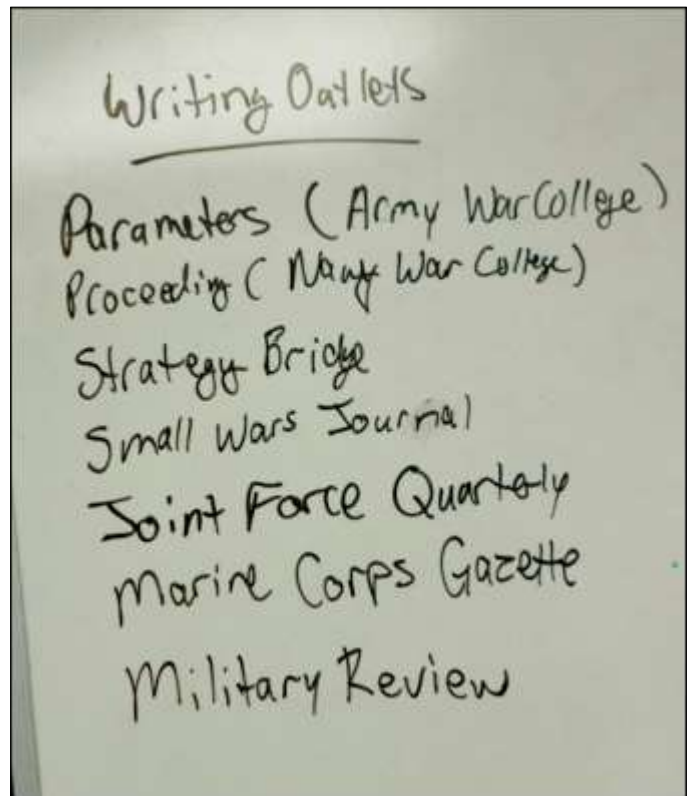 Writing Outlets
Parameters (Army War College)
Proceeding (Navy War College)
Strategy Bridge
Small Wars Journal
Joint Force Quarterly
Marine Corps Gazette
Military Review